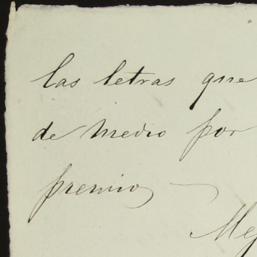 las letras que
de medio por
premio,